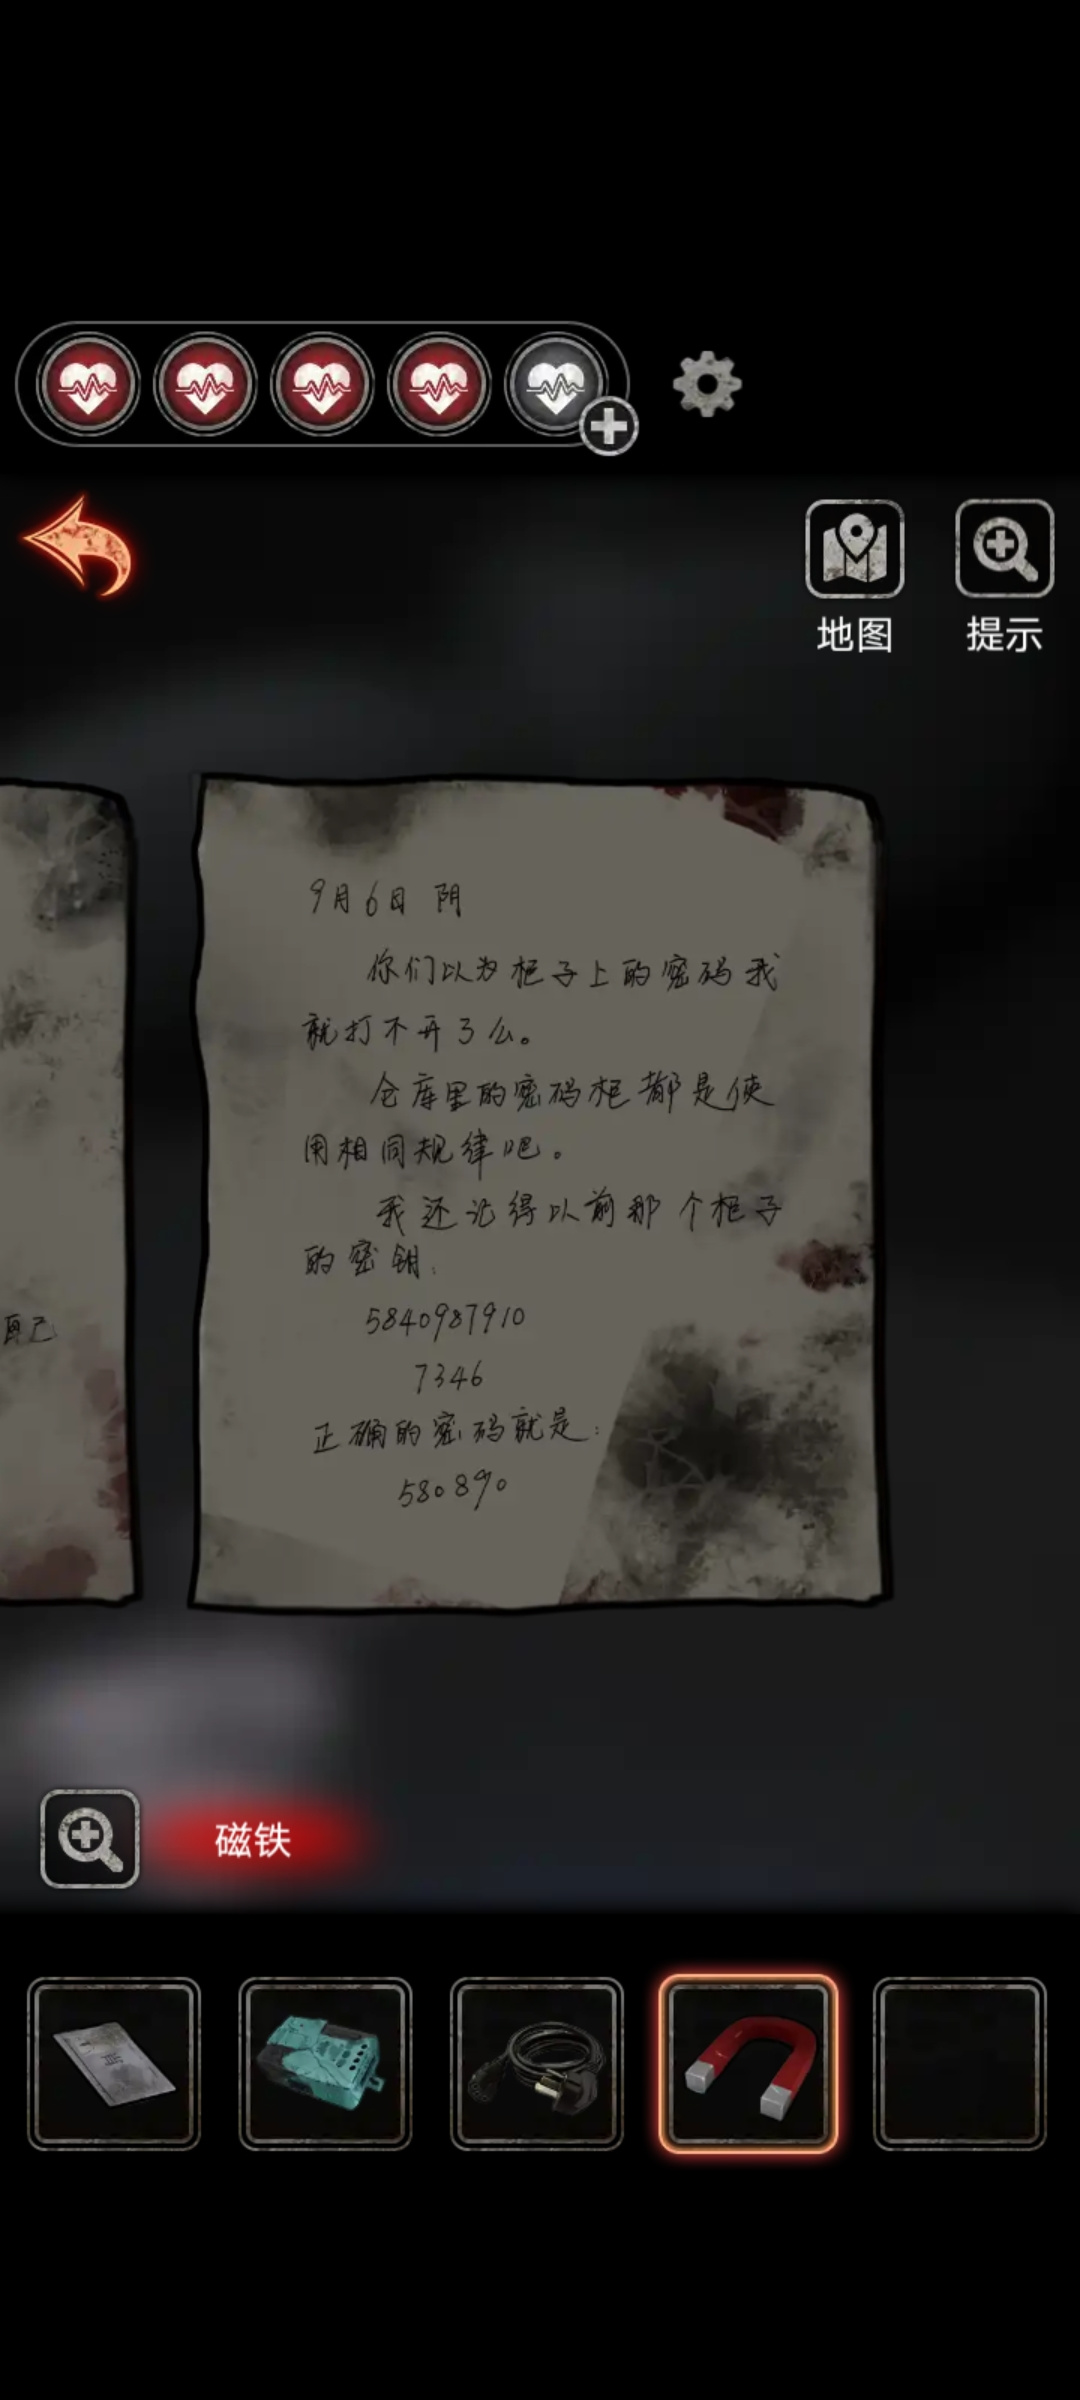 地图
提示
9月6日 阴
你们以为柜子上的密码我
就打不开了么。
仓库里的密码柜都是使
用相同规律吧。
我还记得以前那个柜子
的密钥.
5840987910
自己
7346
正确的密码就是:
580890
磁铁